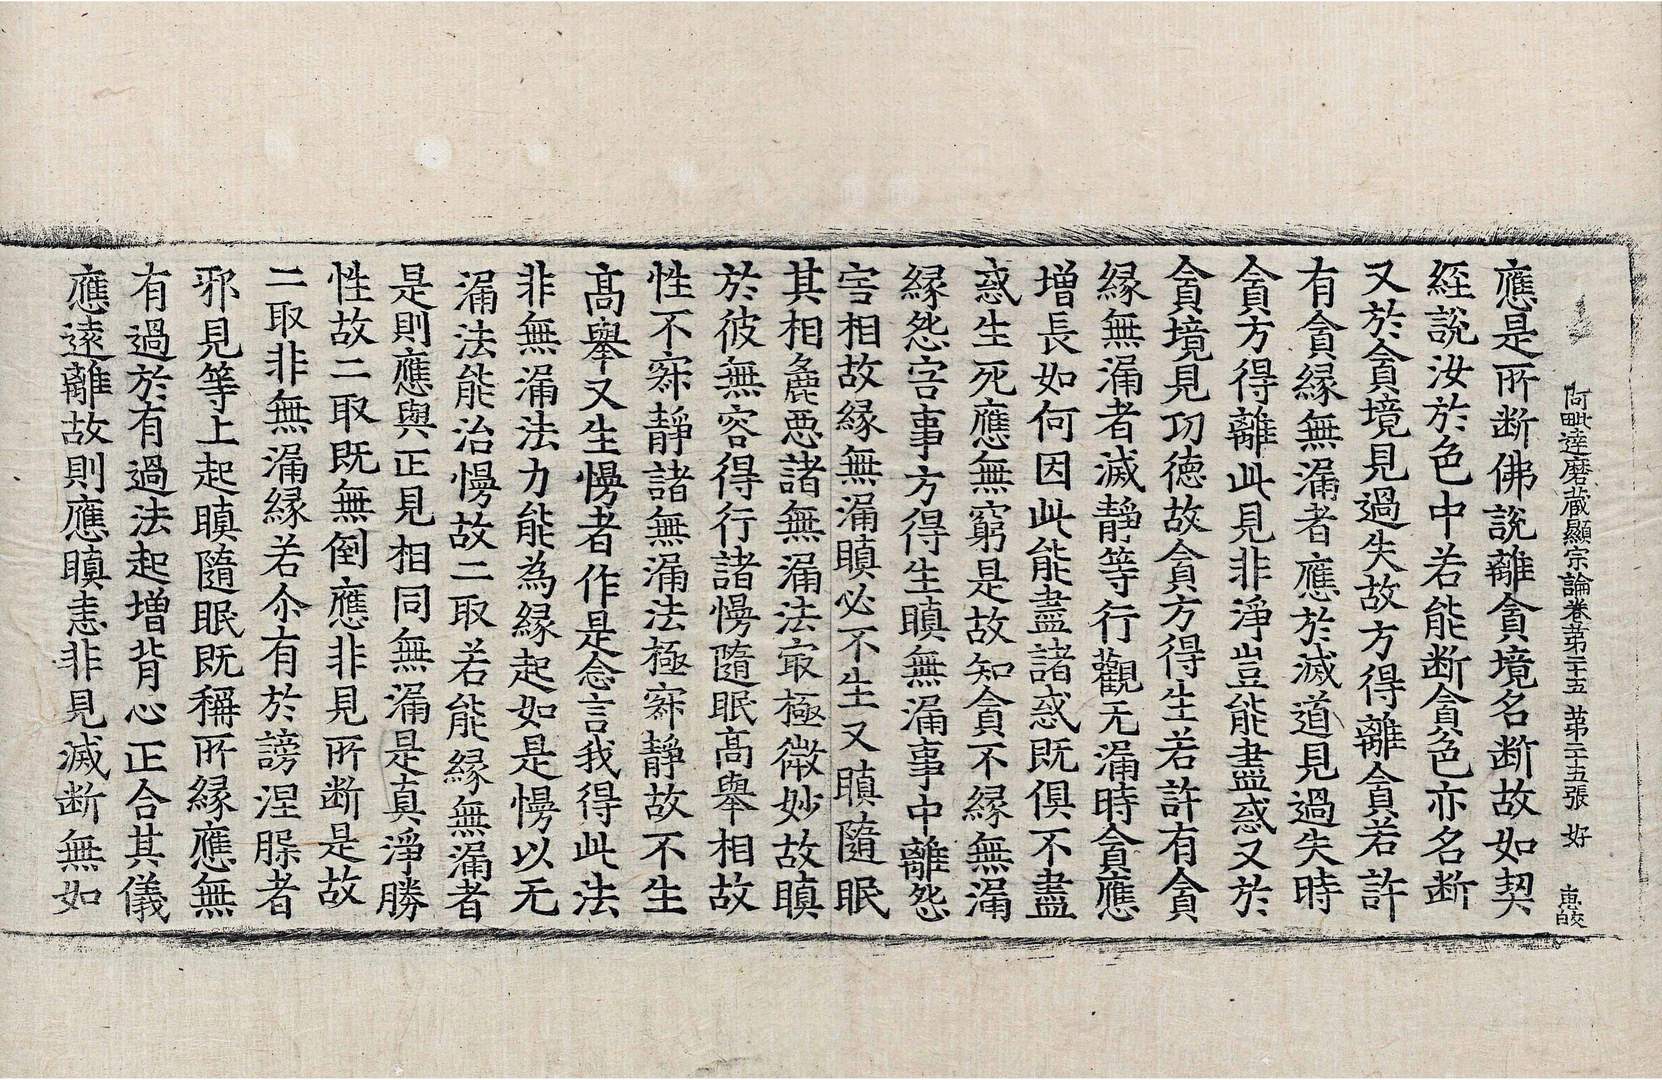 阿毗達磨藏顯宗論卷苐二十五 苐二十五張 好 惠皎
應是所断佛說離貪境名断故如契
經說汝於色中若能断貪色亦名断
又於貪境見過失故方得離貪若許
有貪緣無漏者應於滅道見過失時
貪方得離此見非淨豈能盡惑又於
貪境見功德故貪方得生若許有貪
緣無漏者滅靜等行觀无漏時貪應
增長如何因此能盡諸惑既俱不盡
惑生死應無窮是故知貪不緣無漏
緣怨害事方得生瞋無漏事中離怨
害相故緣無漏瞋必不生又瞋隨眠
其相麁惡諸無漏法㝡極微妙故瞋
於彼無容得行諸慢隨眠高舉相故
性不寂靜諸無漏法極寂靜故不生
高舉又生慢者作是念言我得此法
非無漏法力能為緣起如是慢以无
漏法能治慢故二取若能緣無漏者
是則應與正見相同無漏是真淨勝
性故二取既無倒應非見所断是故
二取非無漏緣若尒有於謗涅槃者
邪見等上起瞋隨眠既稱所緣應無
有過於有過法起增背心正合其儀
應遠離故則應瞋恚非見滅断無如